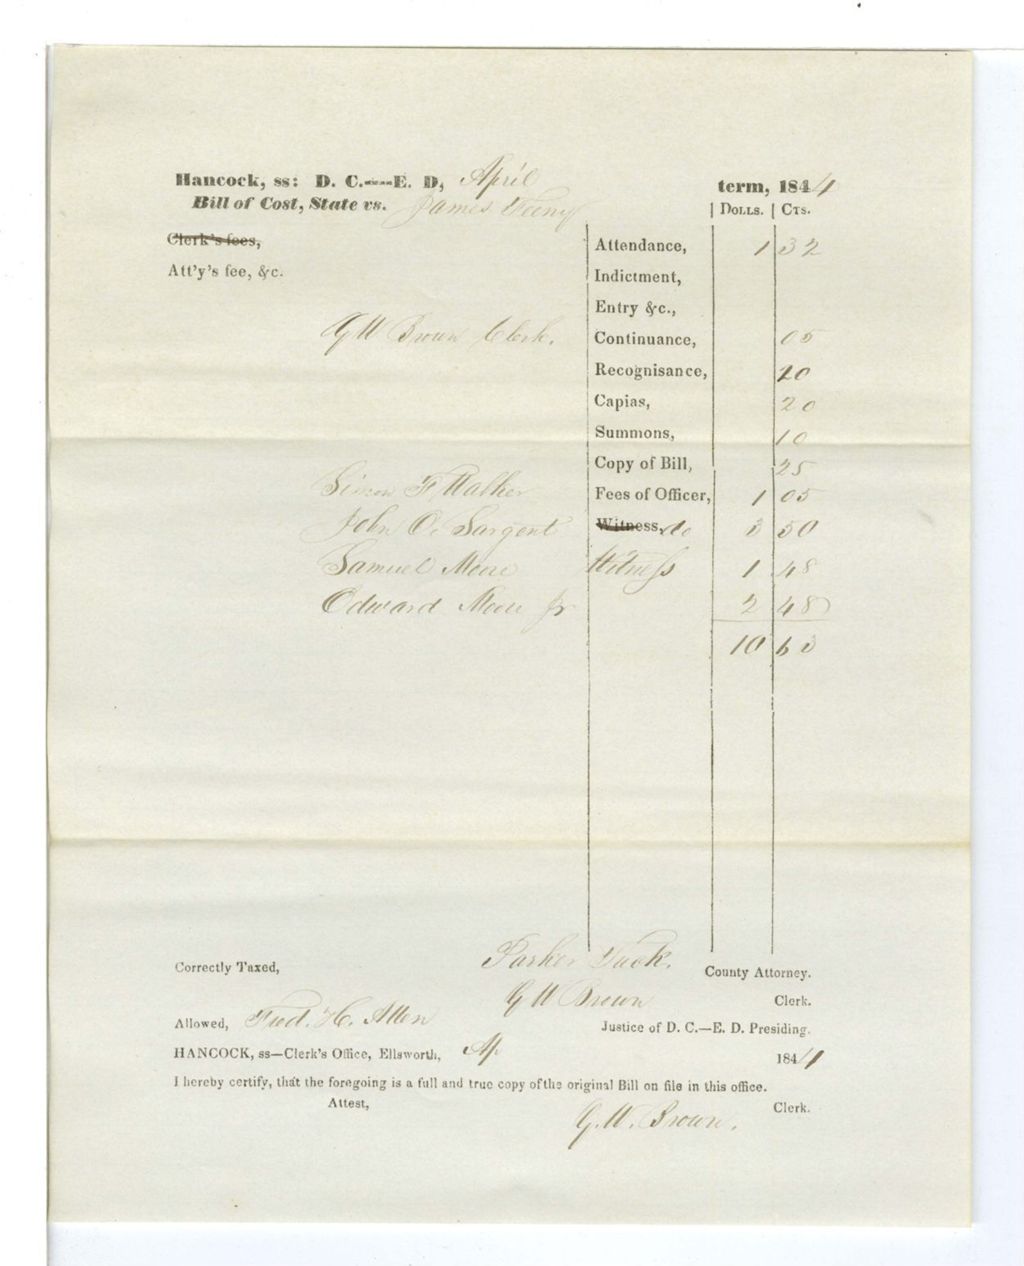 Hancock, ss: D. C.----E. D, April term, 1844
Bill of Cost, State vs. James
| Dolls. | Cts.
Clerk's fees, Attendance, 1 32
Att'y's fee, &c. Indictment,
Entry &c.,
G W Brown Clerk. Continuance, 05
Recognisance, 10
Capias, 20
Summons, 10
Copy of Bill, 25
Simon F Walker Fees of Officer, 1 05
John O. Sargent Witness, do 3 50
Samuel Moore Witness 1 48
Edward Moore Jr 2 48
10 63
Correctly Taxed, Parker Tuck. County Attorney.
G W Brown Clerk.
Allowed, Fred. H. Allen Justice of D. C.—E. D. Presiding.
HANCOCK, ss—Clerk's Office, Ellsworth, Ap 1844
I hereby certify, that the foregoing is a full and true copy of the original Bill on file in this office.
Attest, G. W. Brown. Clerk.